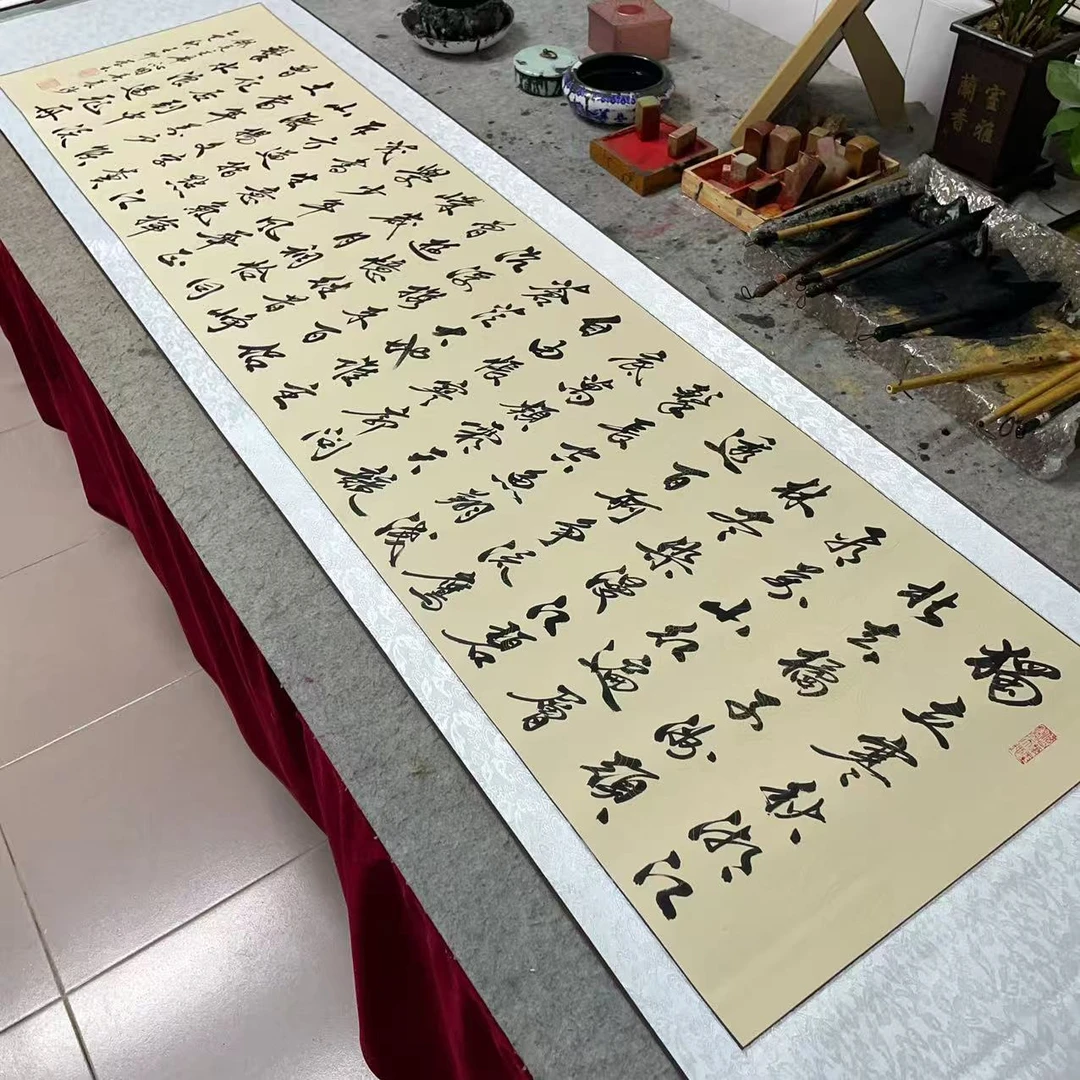 獨立寒秋湘江
北去橘子洲頭
看萬山紅遍層
林盡染漫江碧
透百舸爭流鷹
擊長空魚翔淺
底萬類霜天競
自由悵寥廓問
蒼茫大地誰主
沉浮攜來百侶
曾遊憶往昔崢
嶸歲月稠恰同
學少年風華正
茂書生意氣揮
斥方遒指點江
山激揚文字糞
土當年萬戶侯
曾記否到中流
擊水浪遏飛舟
室雅
蘭香